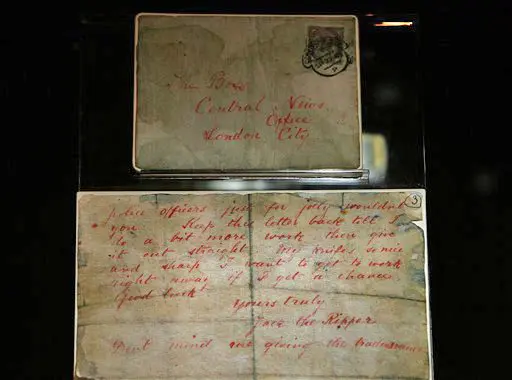 The Boss
Central News
Office
London City
3
police officers just for jolly wouldnt
you Keep this letter back till I
do a bit more work then give
it out straight My knife's so nice
and sharp I want to get to work
right away if I get a chance.
Good luck
Yours truly
Jack the Ripper
Dont mind me giving the trade name